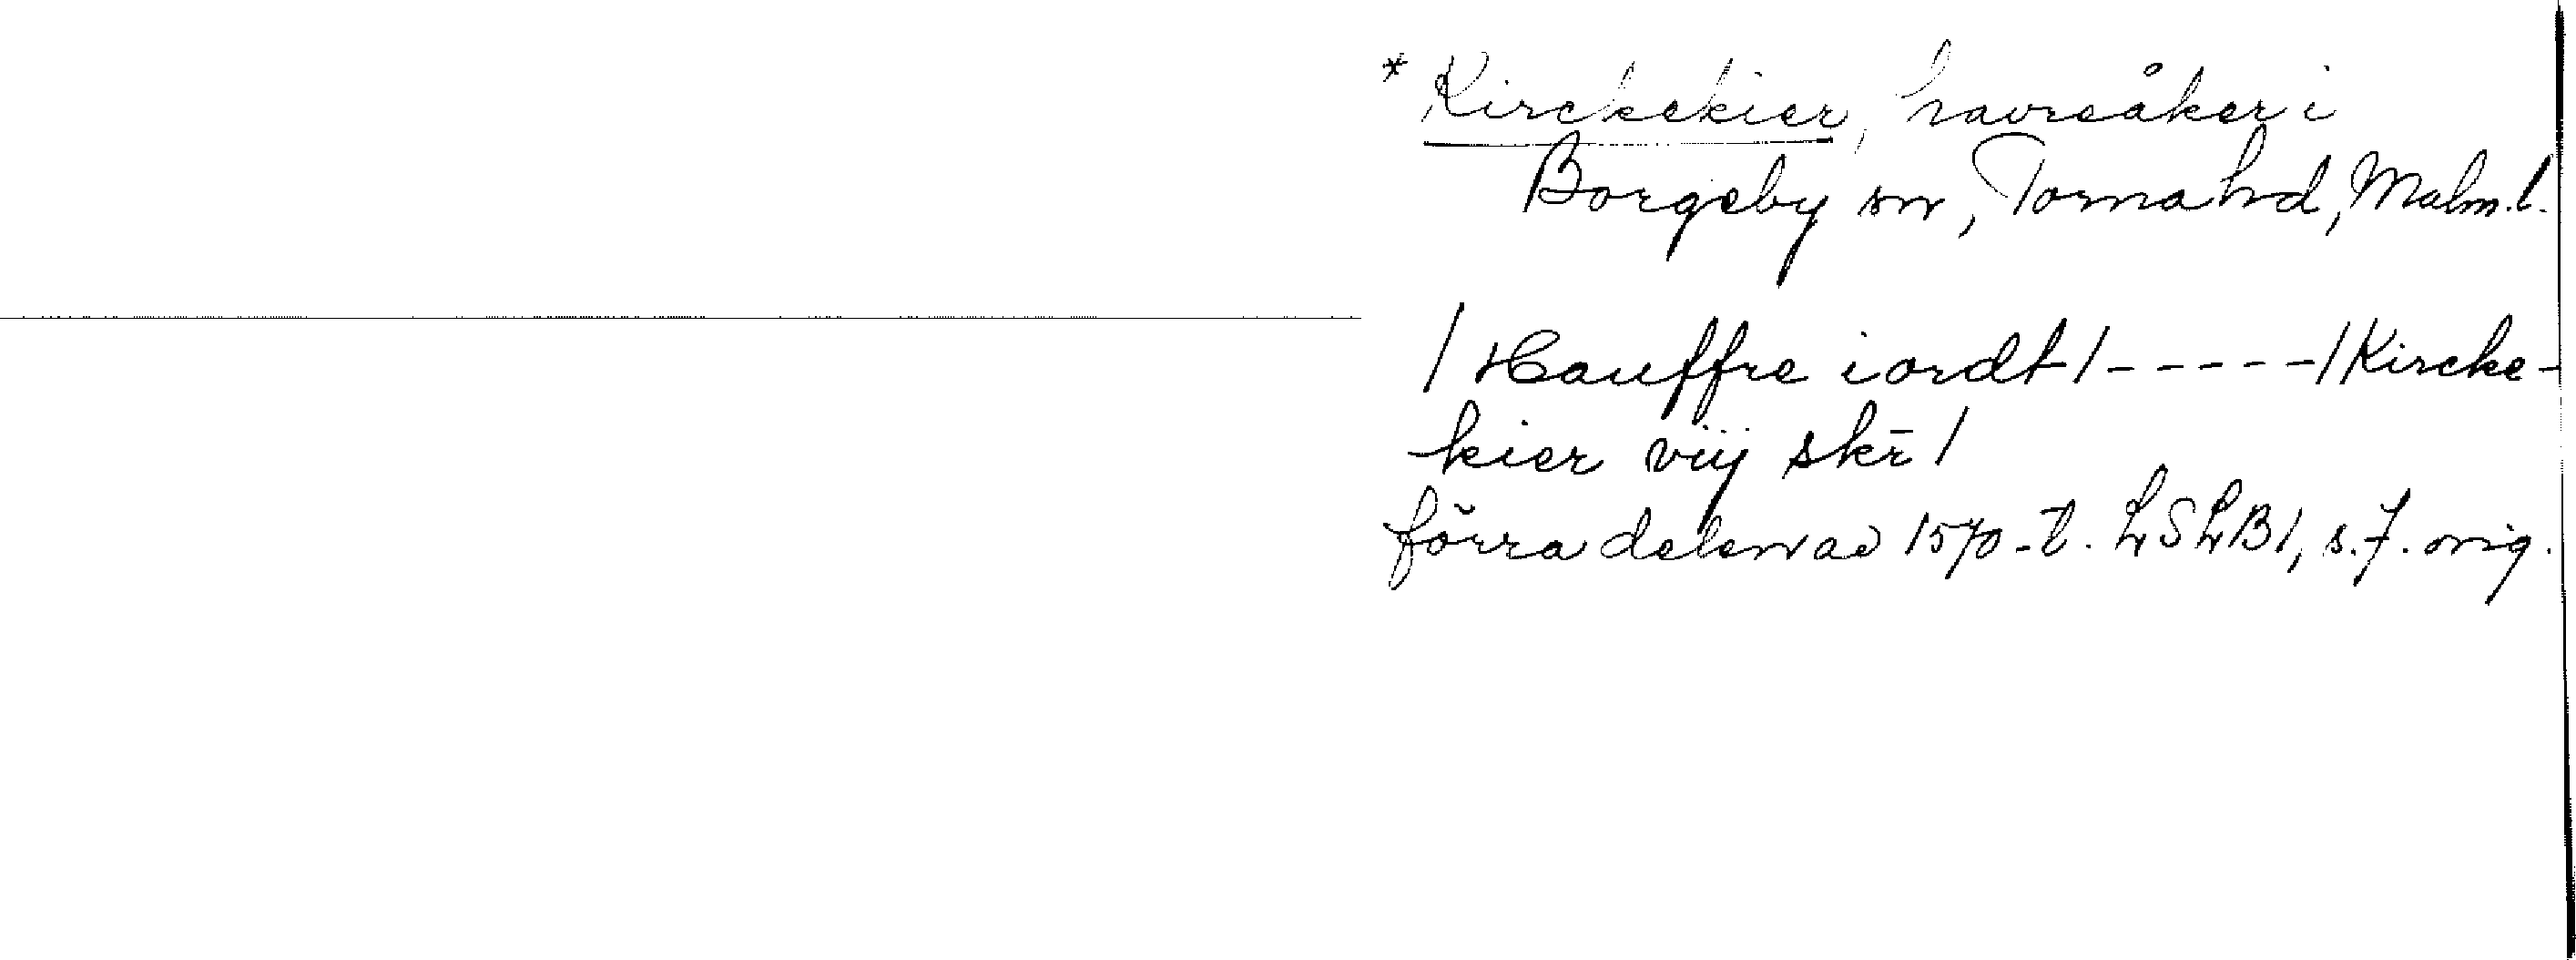 * Kirckekier, havreåker i
Borgeby sn, Torna hd, Malm.l.
/ Hauffre iordt / - - - - - / Kircke-
kier vıȷ skr̄ /
förra delen av 1570-t. LSLB1, s.7. orig.